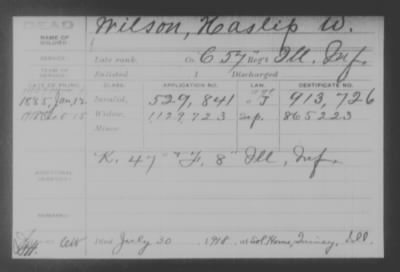 DEAD
NAME OF SOLDIER: Wilson, Haslip W.
SERVICE: Late rank, Co. C 57" Reg't Ill. Inf.
TERM OF SERVICE: Enlisted Discharged
DATE OF FILING. CLASS. APPLICATION NO. LAW. CERTIFICATE NO.
1885, Jan, 12 Invalid, 529,841 "J" 913,726
Widow, 1129723 865223
Minor,
ADDITIONAL SERVICES: K. 47" & F, 8" Ill, Inf.
REMARKS:
Died July 30, 1918, at Sol. Home, Quincy, Ill.